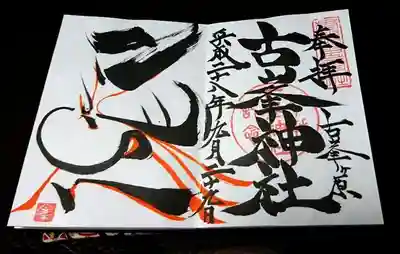 奉拝
古峯ヶ原
古峯神社
平成二十八年九月二十九日